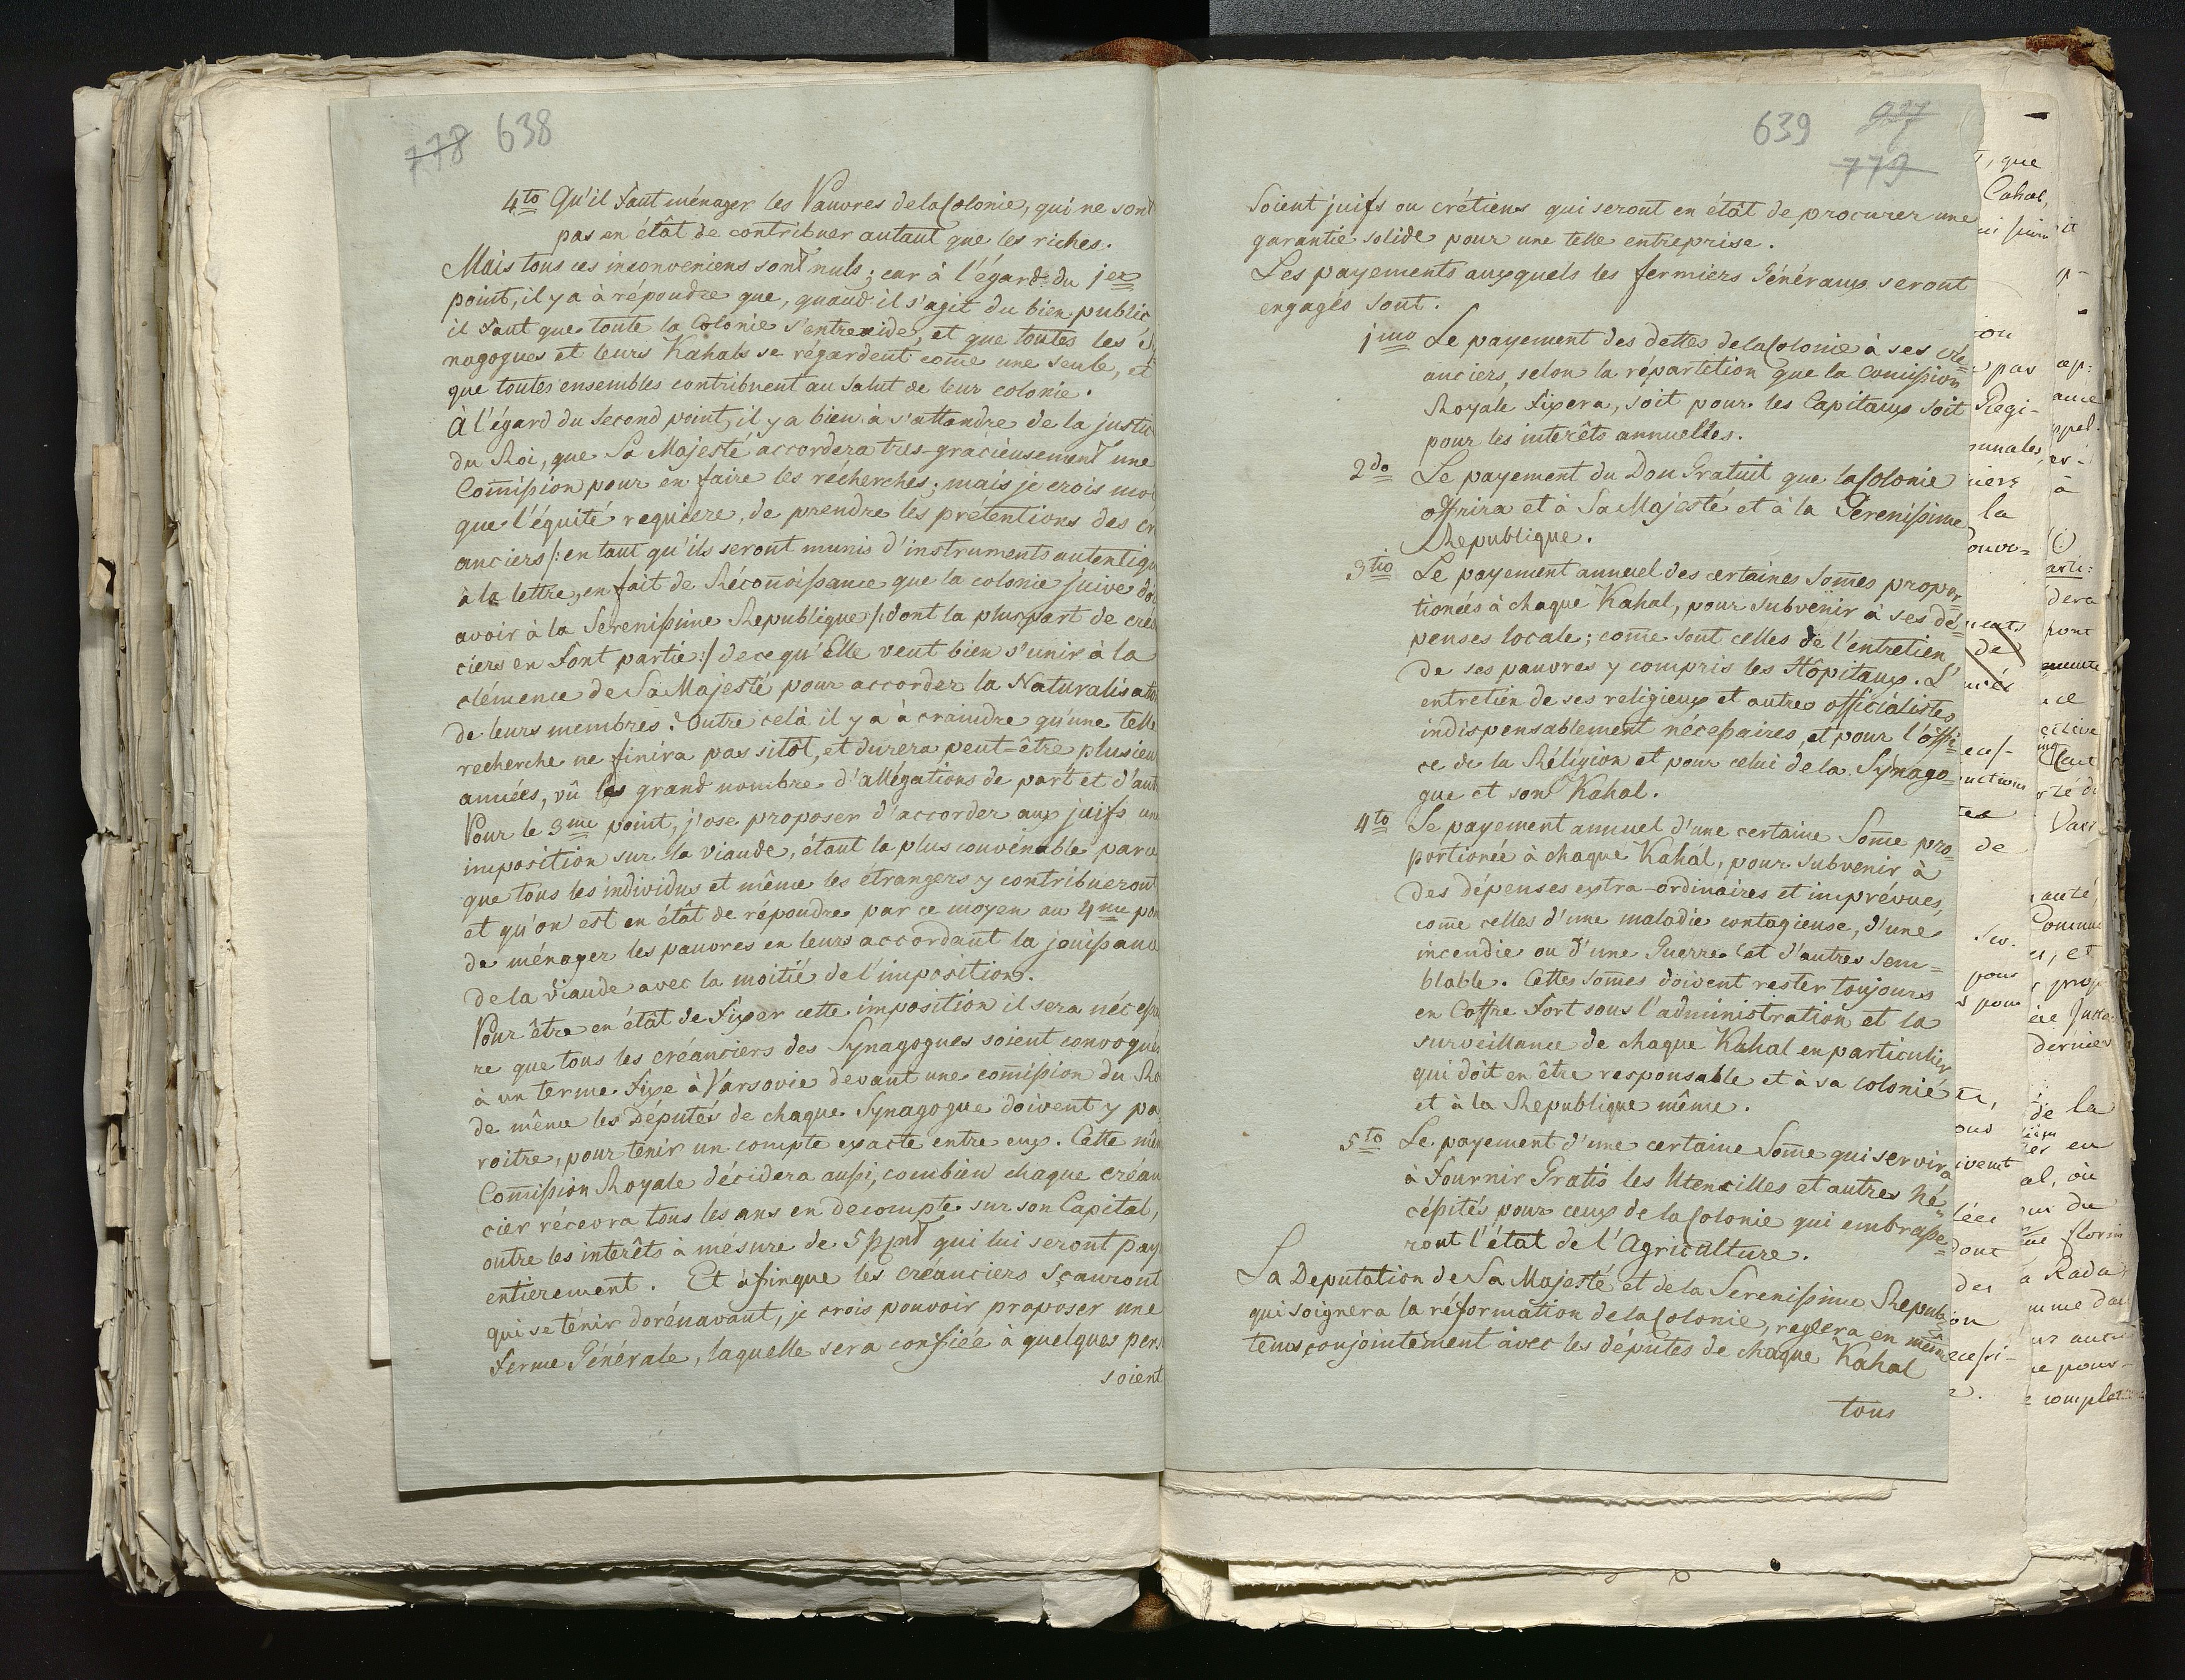 778 638
4to Qu'il faut ménager les Pauvres de la Colonie, qui ne sont
pas en étât de contribuer autant que les riches.
Mais tous ces inconveniens sont nuls; car à l'égard du 1er
point, il y a à répondre que, quand il s'agit du bien public
il faut que toute la Colonie s'entreaide, et que toutes les
nagogues et leurs Kahals se régardent come une seule, et
que toutes ensembles contribuent au salut de leur colonie.
À l'égard du second point, il y a bien à s'attandre de la justic
du Roi, que Sa Majesté accordera tres-gracieusement une
Comission pour en faire les récherches; mais je crois moi
que l'équité requiere, de prendre les prétentions des cr
anciers /: en tant qu'ils seront munis d'instruments autentiqu
à la lettre, en fait de Réconoissance que la colonie juive doi
avoir à la Serenissime Republique /: dont la pluspart de cré
ciers en font partie :/ de ce qu'Elle veut bien s'unir à la
clémence de Sa Majesté pour accorder la Naturalisatio
de leurs membres. Outre celà il y a à craindre qu'une telle
recherche ne finira pas sitôt, et durera peut-être plusieu
années, vû le grand nombre d'allégations de part et d'aut
Pour le 3me point, j'ose proposer d'accorder aux juifs une
imposition sur la viande, étant la plus convénable parce
que tous les individus et même les étrangers y contribueront
et qu'on est en étât de répondre par ce moyen au 4me poin
de ménager les pauvres en leurs accordant la jouissance
de la viande avec la moitié de l'imposition.
Pour être en étât de fixer cette imposition il sera nécessai
re que tous les créanciers des Synagogues soient convoqués
à un terme fixe à Varsovie devant une comission du Ro
de même les Députés de chaque Synagogue doivent y pa
roitre, pour tenir un compte exacte entre eux. Cette mêm
Comission Royale décidera aussi, combien chaque créan
cier récevra tous les ans en decompte sur son Capital,
outre les interêts à mésure de 5 p cnt qui lui seront pay
entierement. Et àfinque les créanciers sçauront
qui se ténir dorénavant, je crois pouvoir proposer une
Ferme Générale, laquelle sera confiée à quelques pers
soient
639
779
soient juifs ou crétiens qui seront en étât de procurer une
garantie solide pour une telle entreprise.
Les payements auxquels les fermiers Généraux seront
engagés sont.
1mo Le payement des dettes de la Colonie à ses cré=
anciers, selon la répartition que la Comission
Royale fixera, soit pour les Capitaux soit
pour les interêts annuelles.
2do Le payement du Don Gratuit que la Colonie
offrira et à Sa Majesté et à la Serenissime
Republique.
3tio Le payement annuel des certaines Somes propor=
tionées à chaque Kahal, pour subvenir à ses dé=
penses locale; come sont celles de l'entretien
de ses pauvres y compris les Hôpitaux. L'
entretien de ses religieux et autres officialistes
indispensablement nécessaires, et pour l'offi=
ce de la Réligion et pour celui de la Synago=
gue et son Kahal.
4to Le payement annuel d'une certaine Some pro=
portionée à chaque Kahal, pour subvenir à
des dépenses extra-ordinaires et imprévues,
come celles d'une maladie contagieuse, d'une
incendie ou d'une Guerre et d'autres sem=
blable. Cettes Somes doivent rester toujours
en Coffre fort sous l'administration et la
surveillance de chaque Kahal en particulier
qui doit en être responsable et à sa colonie
et à la Republique même.
5to Le payement d'une certaine Some qui servira
à fournir Gratis les Utencilles et autres Né=
céssités pour ceux de la Colonie qui embrasse=
ront l'état de l'Agriculture.
La Deputation de Sa Majesté et de la Serenissime Republ=
qui soignera la réformation de la Colonie, reglera en même
tems conjointement avec les députés de chaque Kahal
tous